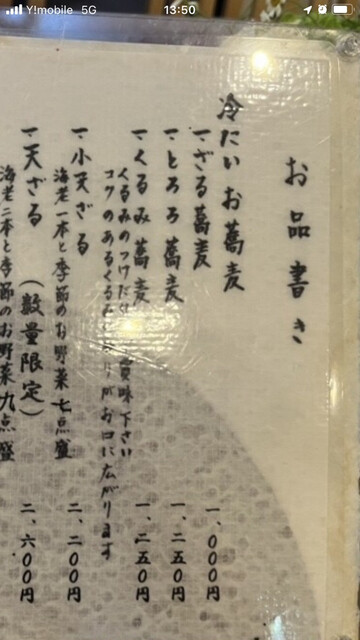 Y!mobile 5G 13:50
お品書き
冷たいお蕎麦
一ざる蕎麦 一、〇〇〇円
一とろろ蕎麦 一、二五〇円
一くるみ蕎麦 一、二五〇円
くるみのつけだ 賞味下さい
コクのあるくるみ がお口に広がります
一小天ざる 二、二〇〇円
海老一本と季節のお野菜七点盛
一天ざる（数量限定） 二、六〇〇円
海老二本と季節のお野菜九点盛